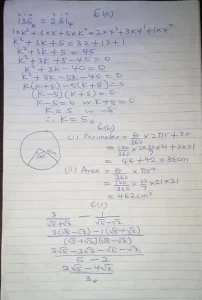 135ₖ = 231₄ 6(a)
1×K²+3×K+5×K⁰=2×4²+3×4¹+1×4⁰
K²+3K+5=32+12+1
K²+3K+5=45
K²+3K+5-45=0
K²+3K-40=0
K²+8K-5K-40=0
K(K+8)-5(K+8)=0
(K-5)(K+8)=0
K-5=0 or K+8=0
K=5 or -8
i.e K=5
6(b)
(i) Perimeter = θ/360 × 2πr + 2r
= 120/360 × 2× 22/7 ×21 + 2×21
= 44 + 42 = 86cm
(ii) Area = θ/360 × πr²
= 120/360 × 22/7 × 21 × 21
= 462cm²
6(c)
3/(√5+√2) - 1/(√5-√2)
3(√5-√2)-1(√5+√2)
(√5+√2)(√5-√2)
3√5-3√2-√5-√2
5-2
2√5-4√2
3